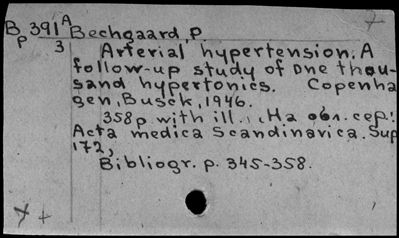 B 391 A Bechgaard, P
p 3
Arterial hypertension. A
follow-up study of one thou-
sand hypertonics. Copenha
gen, Busck, 1946.
358p. with ill., На обл. сер.:
Acta medica Scandinavica. Sup
172,
Bibliogr. p. 345-358.